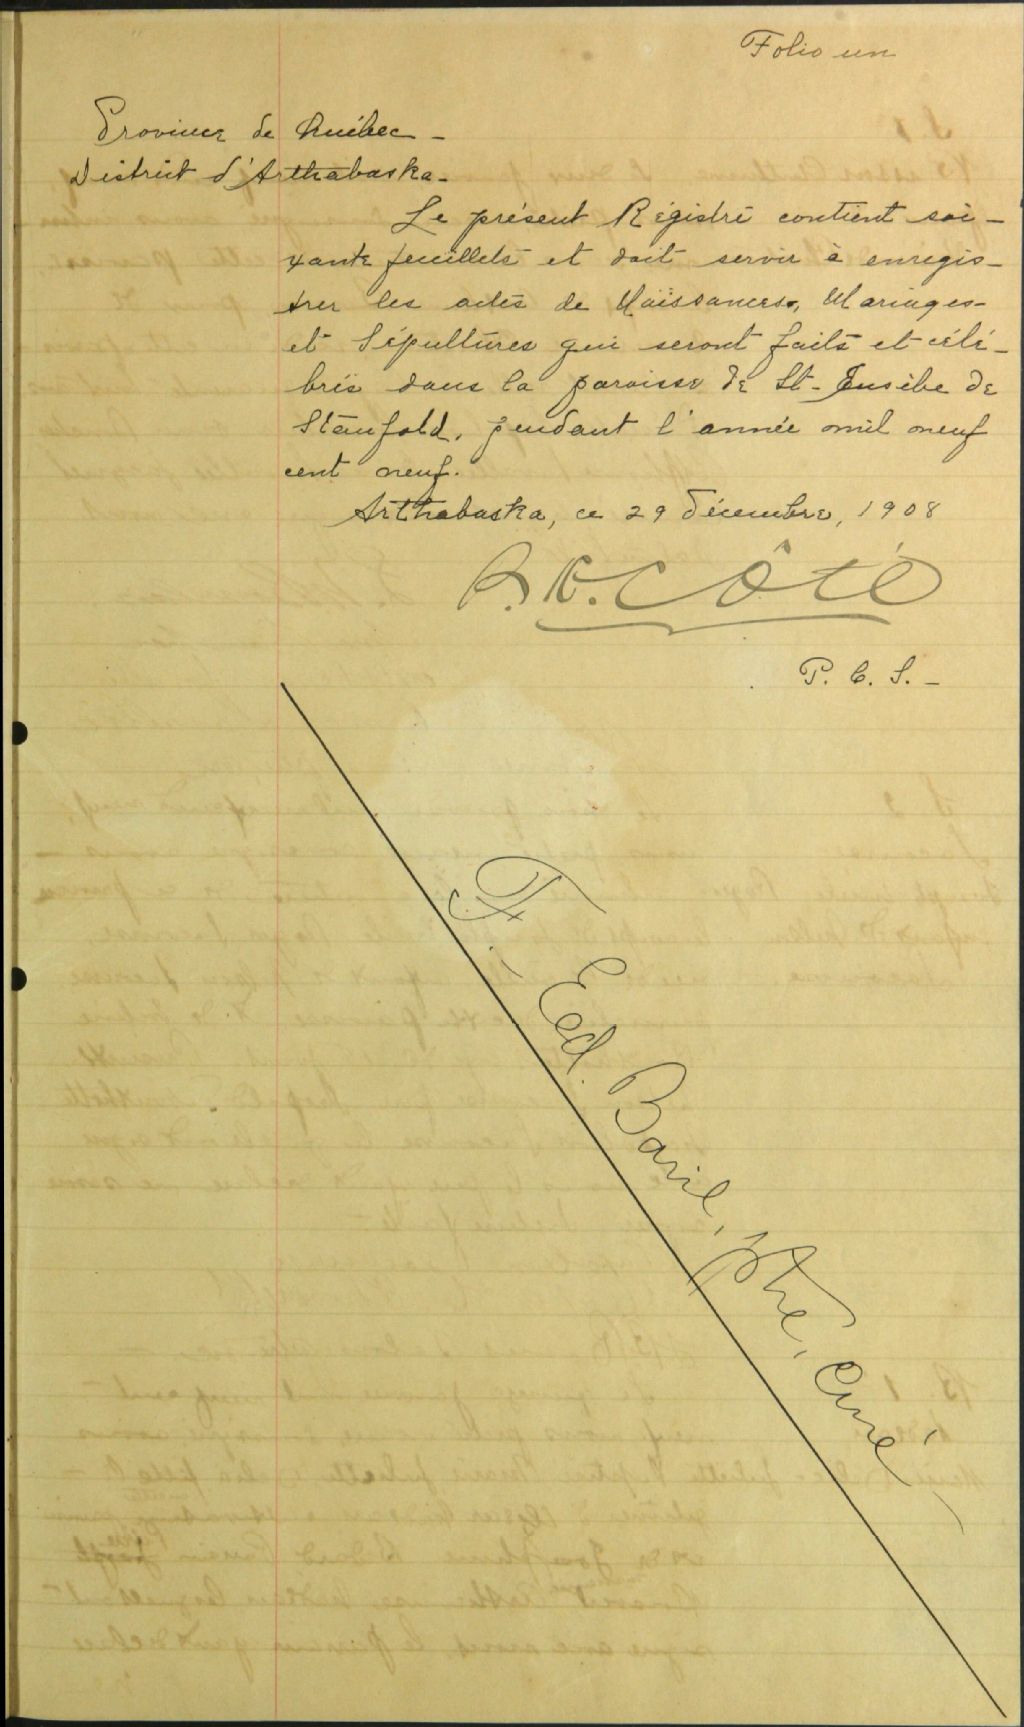 Folio un
Province de Québec -
District d'Arthabaska -
Le présent Régistre contient soi-
xante feuillets et doit servir à enregis-
trer les actes de Naissances, Mariages
et Sépultures qui seront faits et célé-
brés dans la paroisse de St-Eusèbe de
Stanfold, pendant l'année mil neuf
cent neuf.
Arthabaska, ce 29 décembre, 1908
Côté
P. C. S. -
F.- Ed. Baril, ptre, curé -